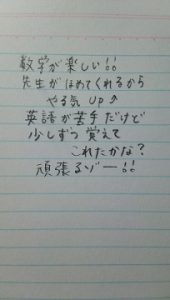 数学が楽しい!!
先生がほめてくれるから
やる気 UP↗
英語が苦手だけど
少しずつ覚えて
これたかな?
頑張るゾー!!